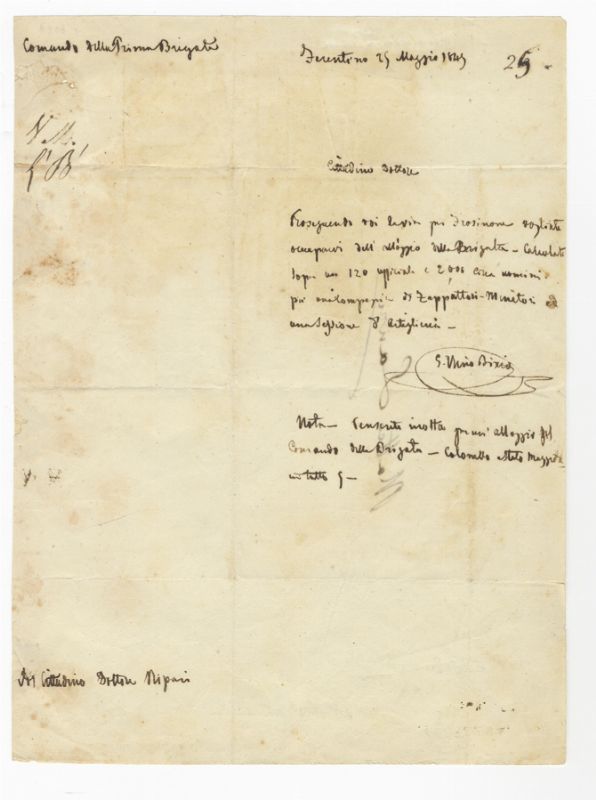 Comando della Prima Brigata
Ferentino 25 Maggio 1849
25
Cittadino Dottore
Proseguendo voi la via per Frosinone vogliate
occuparvi dell'alloggio della Brigata – Calcolate
sopra 120 ufficiali e 2,000 circa uomini
più una Compagnia di Zappatori-Minatori ed
una Sezione d'Artiglieria –
G. Nino Bixio
Nota – inoltre alloggio pel
Comando della Brigata – Colonnello e Stato Maggiore
in tutto 5 –
Al Cittadino Dottore Ripari